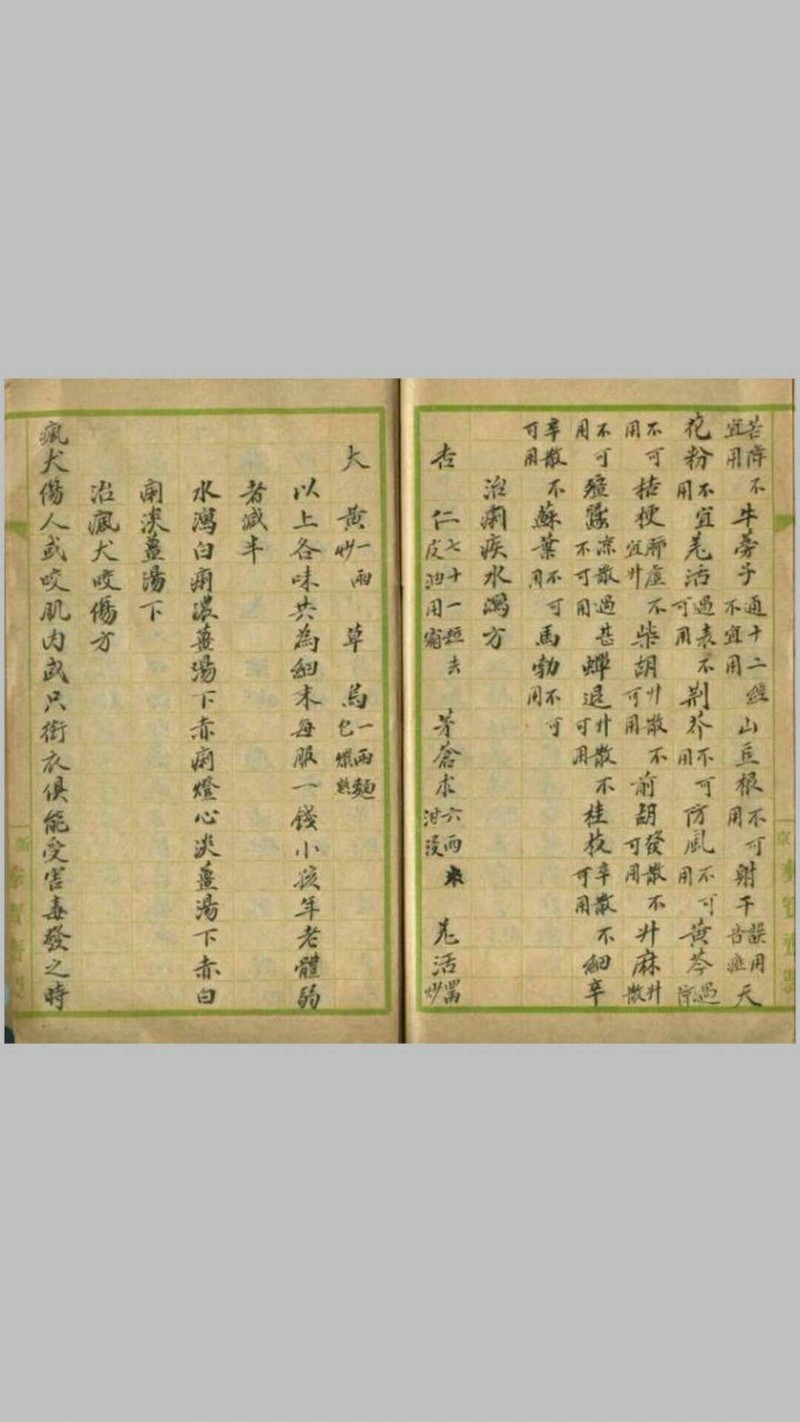 苦降不宜用牛蒡子通十二經不宜用山豆根不可用射干誤用苦天
花粉不宜用羌活過表不可用荆芥不可用防風不可用黃芩過
不可用桔梗肺虛不宜升柴胡升散不可用前胡發散不可用升麻升散
不可用殭蠶涼散過甚不可用蟬退升散不可用桂枝辛散不可用細辛
辛散不可用蘇葉不可用馬勃不可用
治痢疾水瀉方
杏仁七十一粒去皮油用霜茅蒼朮六兩米泔浸羌活炒
大黃一兩炒草烏一兩麵包煨熟
以上各味共為細末每服一錢小孩年老體弱
者減半
水瀉白痢濃薑湯下赤痢燈心淡薑湯下赤白
痢淡薑湯下
治瘋犬咬傷方
瘋犬傷人或咬肌肉或只銜衣俱能受害毒發之時